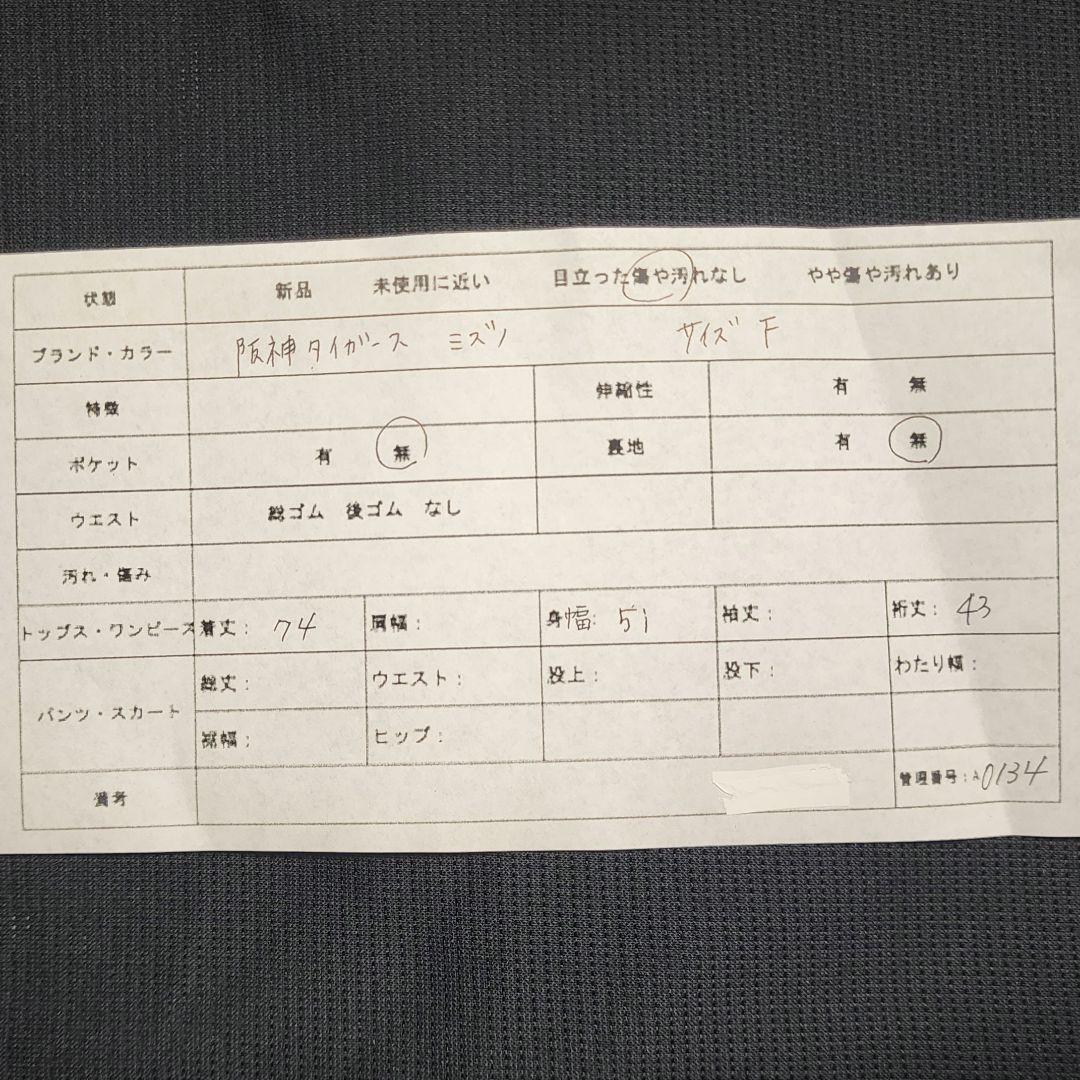 状態 新品 未使用に近い 目立った傷や汚れなし やや傷や汚れあり
ブランド・カラー 阪神タイガース ミズノ サイズ F
特徴 伸縮性 有 無
ポケット 有 無 裏地 有 無
ウエスト 総ゴム 後ゴム なし
汚れ・傷み
トップス・ワンピース 着丈: 74 肩幅: 身幅: 51 袖丈: 裄丈: 43
パンツ・スカート 総丈: ウエスト: 股上: 股下: わたり幅:
裾幅: ヒップ:
備考 管理番号:A0134